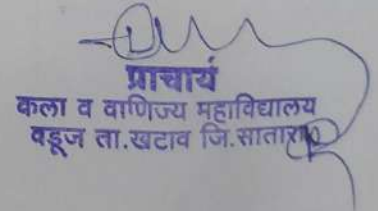 प्राचार्य
कला व वाणिज्य महाविद्यालय
वडूज ता.खटाव जि.सातारा